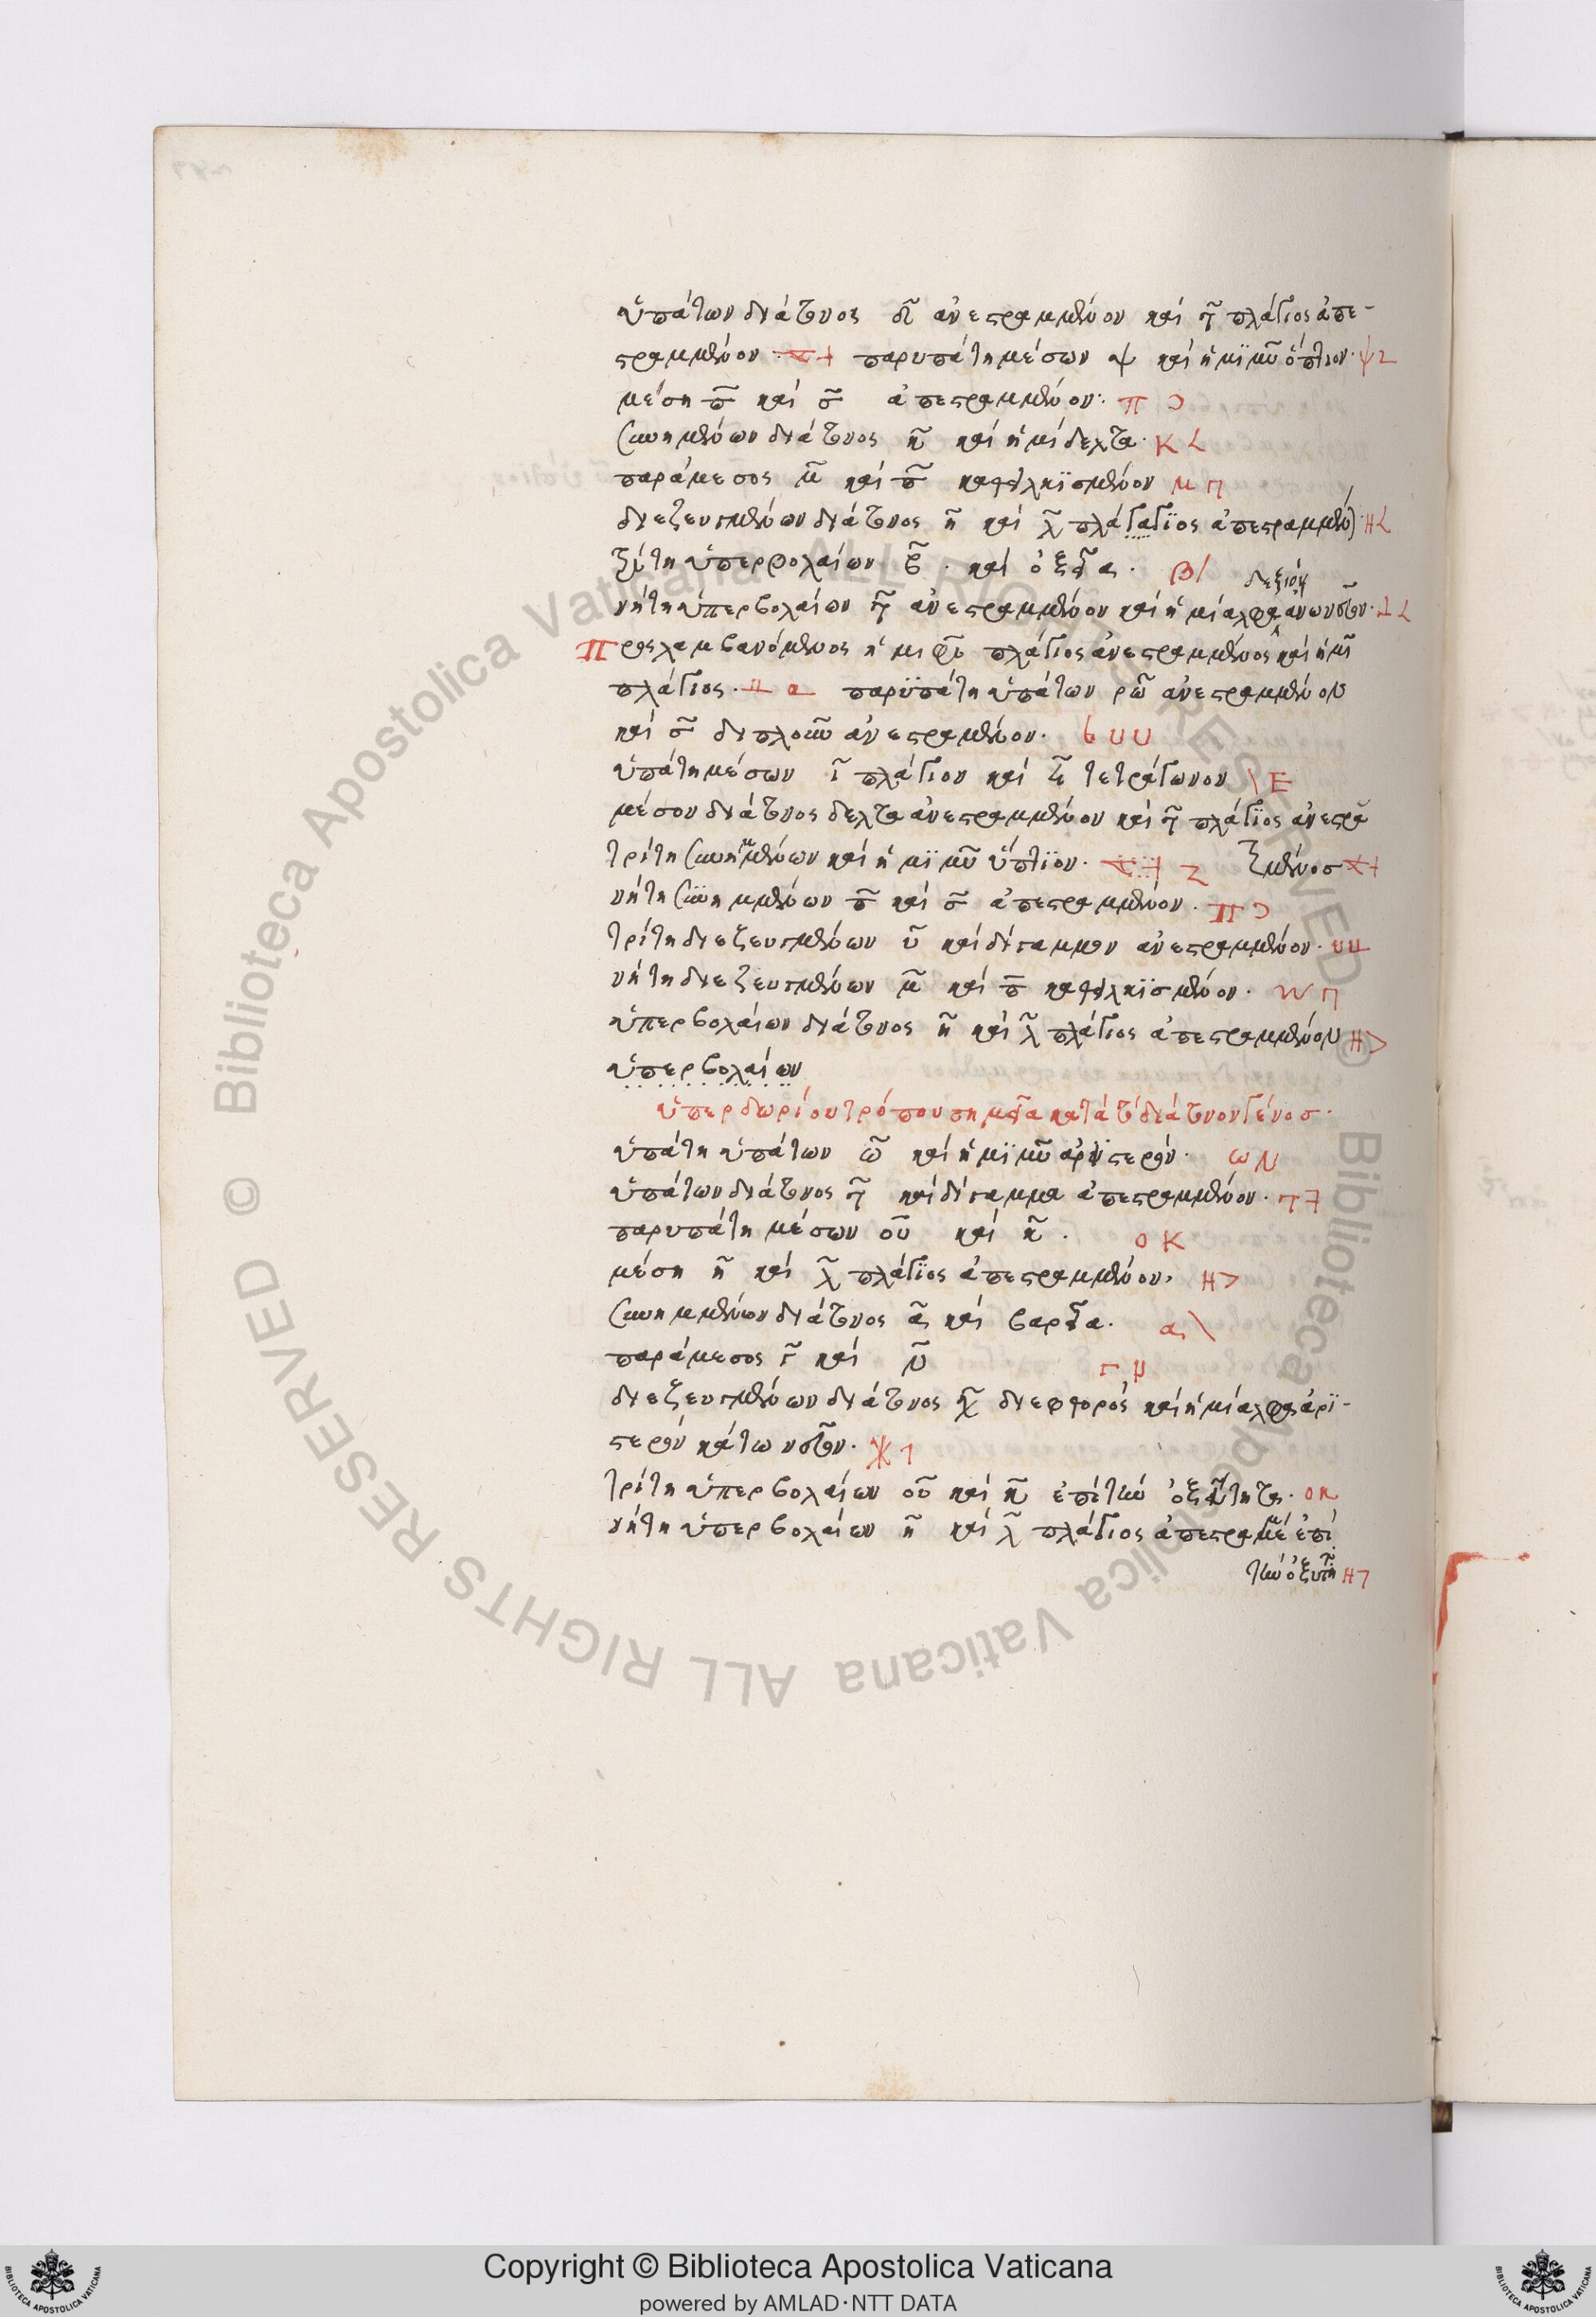 ὑπάτων διάτονος δ̅ι ἀνεστραμμένον καὶ τ̅ πλάγιος ἀπε-
στραμμένον παρυπάτη μέσων ψ καὶ ἡμῖ μ̅υ ὕπτιον·
μέση π̅ καὶ σ̅ ἀπεστραμμένον· π Ɔ
συνημμένων διάτονος κ̅ καὶ ἡμίδελτα· Κ
παράμεσος μ̅ καὶ π̅ καθειλκϊσμένον
διεζευγμένων διάτονος η̅ καὶ λ̅ πλάγαγϊος ἀπεστραμμέν
τρίτη ὑπερβολαίων β̅ · καὶ ὀξεῖα· β/
δεξιόν
νήτη ὑπερβολαίων τ̅ ἀνεστραμμένον καὶ ἡμίαλφα ἄνω νεῦον·
Προσλαμβανόμενος ἡμιφῖ πλάγιος ἀνεστραμμένος καὶ ἡμι
πλάγιος· παρϋπάτη ὑπάτων ἀνεστραμμένον
καὶ σ̅ διπλοῦν ἀνεστραμένον·
ὑπάτη μέσων ι̅ πλάγιον καὶ ε̅ τετράγωνον \ Ε
μέσον διάτονος δελτα ἀνεστραμμένον καὶ τ̅ πλάγϊος ἀνεστρα
τρίτη συνημμένων καὶ ἡμϊ μ̅υ ὕπτϊον· μένος
νήτη συνημμένων π̅ καὶ σ̅ ἀπεστραμμένον· Π Ɔ
τρίτη διεζευγμένων υ̅ καὶ δίγαμμον ἀνεστραμμένον·
νήτη διεζευγμένων μ̅ καὶ π̅ καθειλκϊσμένον·
ὑπερβολαίων διάτονος η̅ καὶ λ̅ πλάγιος ἀπεστραμμένον Η >
ὑπερβολαίων
ὑπερδωρίου τρόπου σημεῖα κατὰ τὸ διάτονον γένοσ·
ὑπάτη ὑπάτων ω̅ καὶ ἡμϊ μ̅υ ἀρϊστερόν· ω
ὑπάτων διάτονος τ̅ καὶ δίγαμμα ἀπεστραμμένον·
παρυπάτη μέσων ο̅υ καὶ κ̅ · ο Κ
μέση η̅ καὶ λ̅ πλάγϊος ἀπεστραμμένον· Η >
συνημμένων διάτονος α̅ καὶ βαρεῖα· α \
παράμεσος γ̅ καὶ ν̅
διεζευγμένων διάτονος διεφθορὸς καὶ ἡμίαλφα ἀρϊ-
στερὸν κάτω νεῦον·
τρίτη ὑπερβολαίων ο̅υ καὶ κ̅ ἐπὶ τὴν ὀξύτητα· ο κ
νήτη ὑπερβολαίων η̅ καὶ λ̅ πλάγιος ἀπεστραμμέ ἐπὶ
τὴν ὀξύτη
Copyright © Biblioteca Apostolica Vaticana
powered by AMLAD·NTT DATA